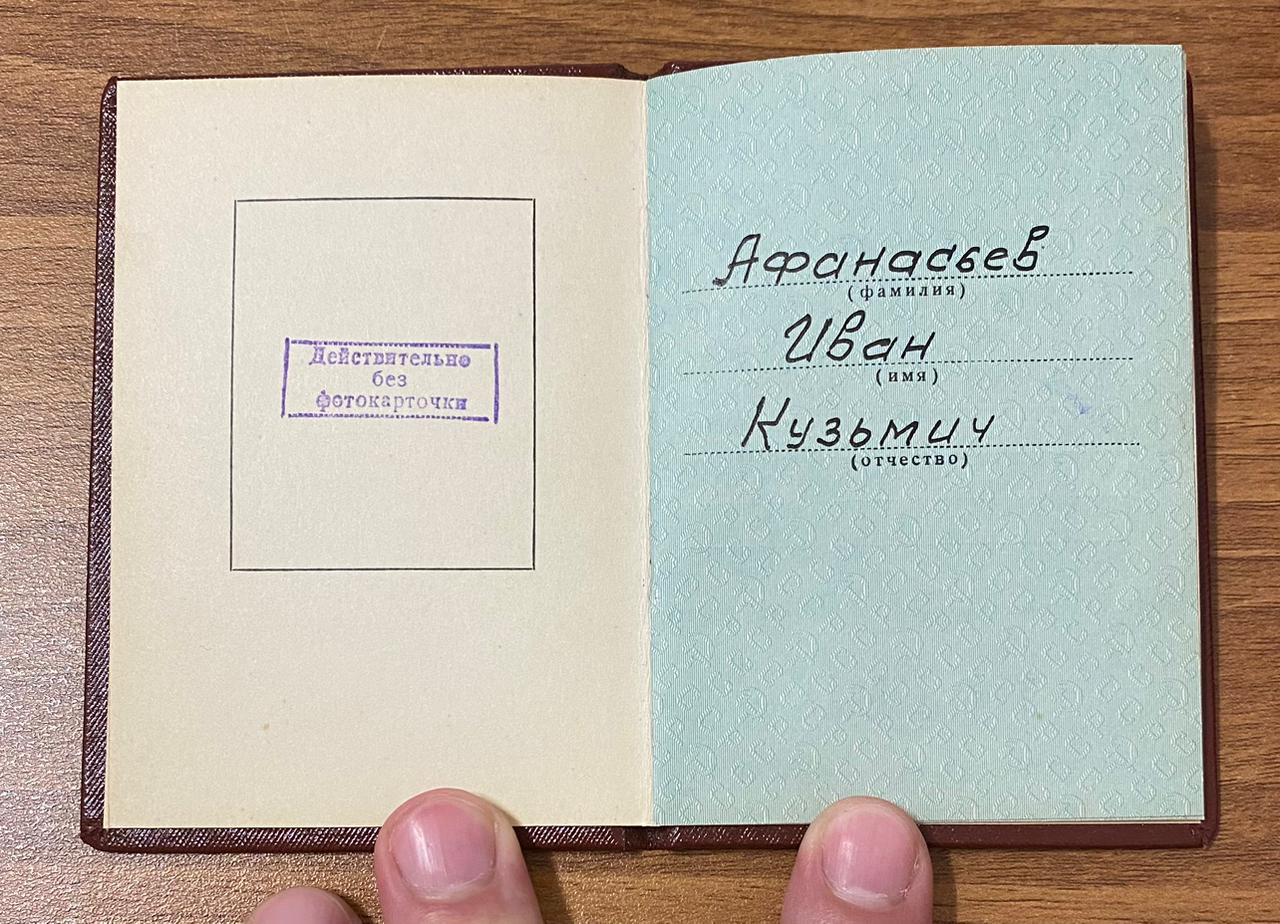 Действительно
без
фотокарточки
Афанасьев
(фамилия)
Иван
(имя)
Кузьмич
(отчество)